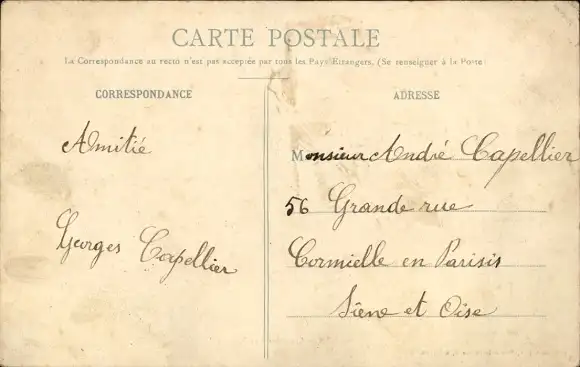 CARTE POSTALE
La Correspondance au recto n'est pas acceptée par tous les Pays Étrangers. (Se renseigner à la Poste
CORRESPONDANCE
Amitié
Georges Capellier
ADRESSE
Monsieur André Capellier
56 Grande rue
Cormielle en Parisis
Siène et Oise